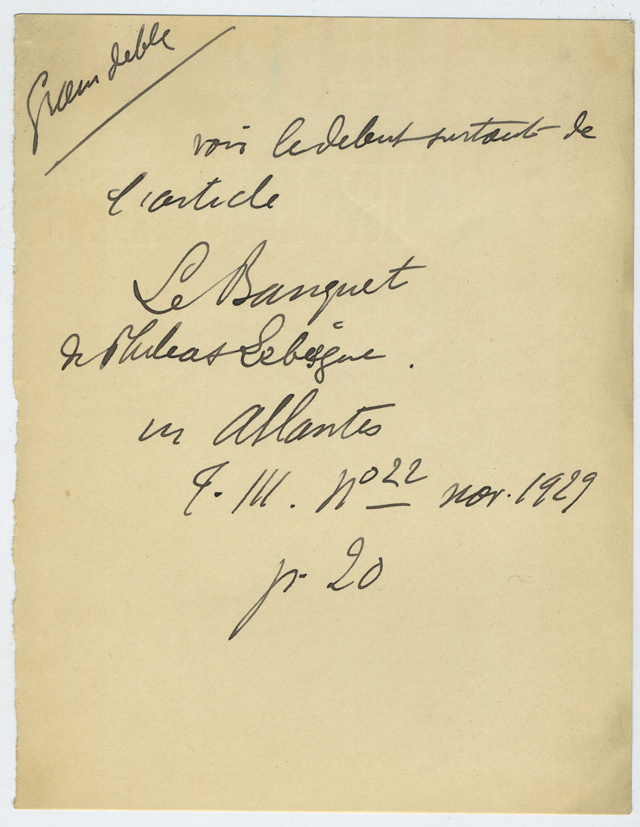 voir le debut surtout de
l'article
Le Banquet
de Phileas Lebesgue.
in Atlantis
T. III. No 22 nov. 1929
p. 20